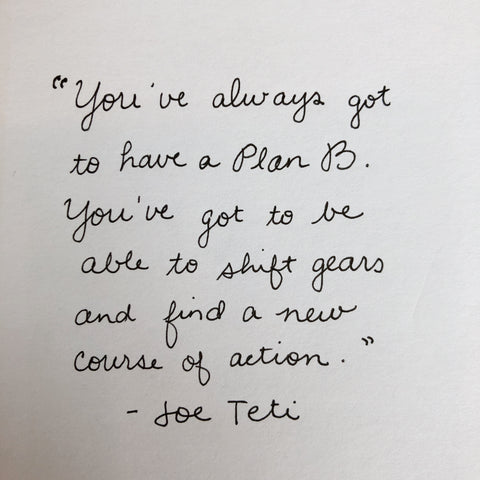 “You've always got
to have a Plan B.
You've got to be
able to shift gears
and find a new
course of action.”
- Joe Teti